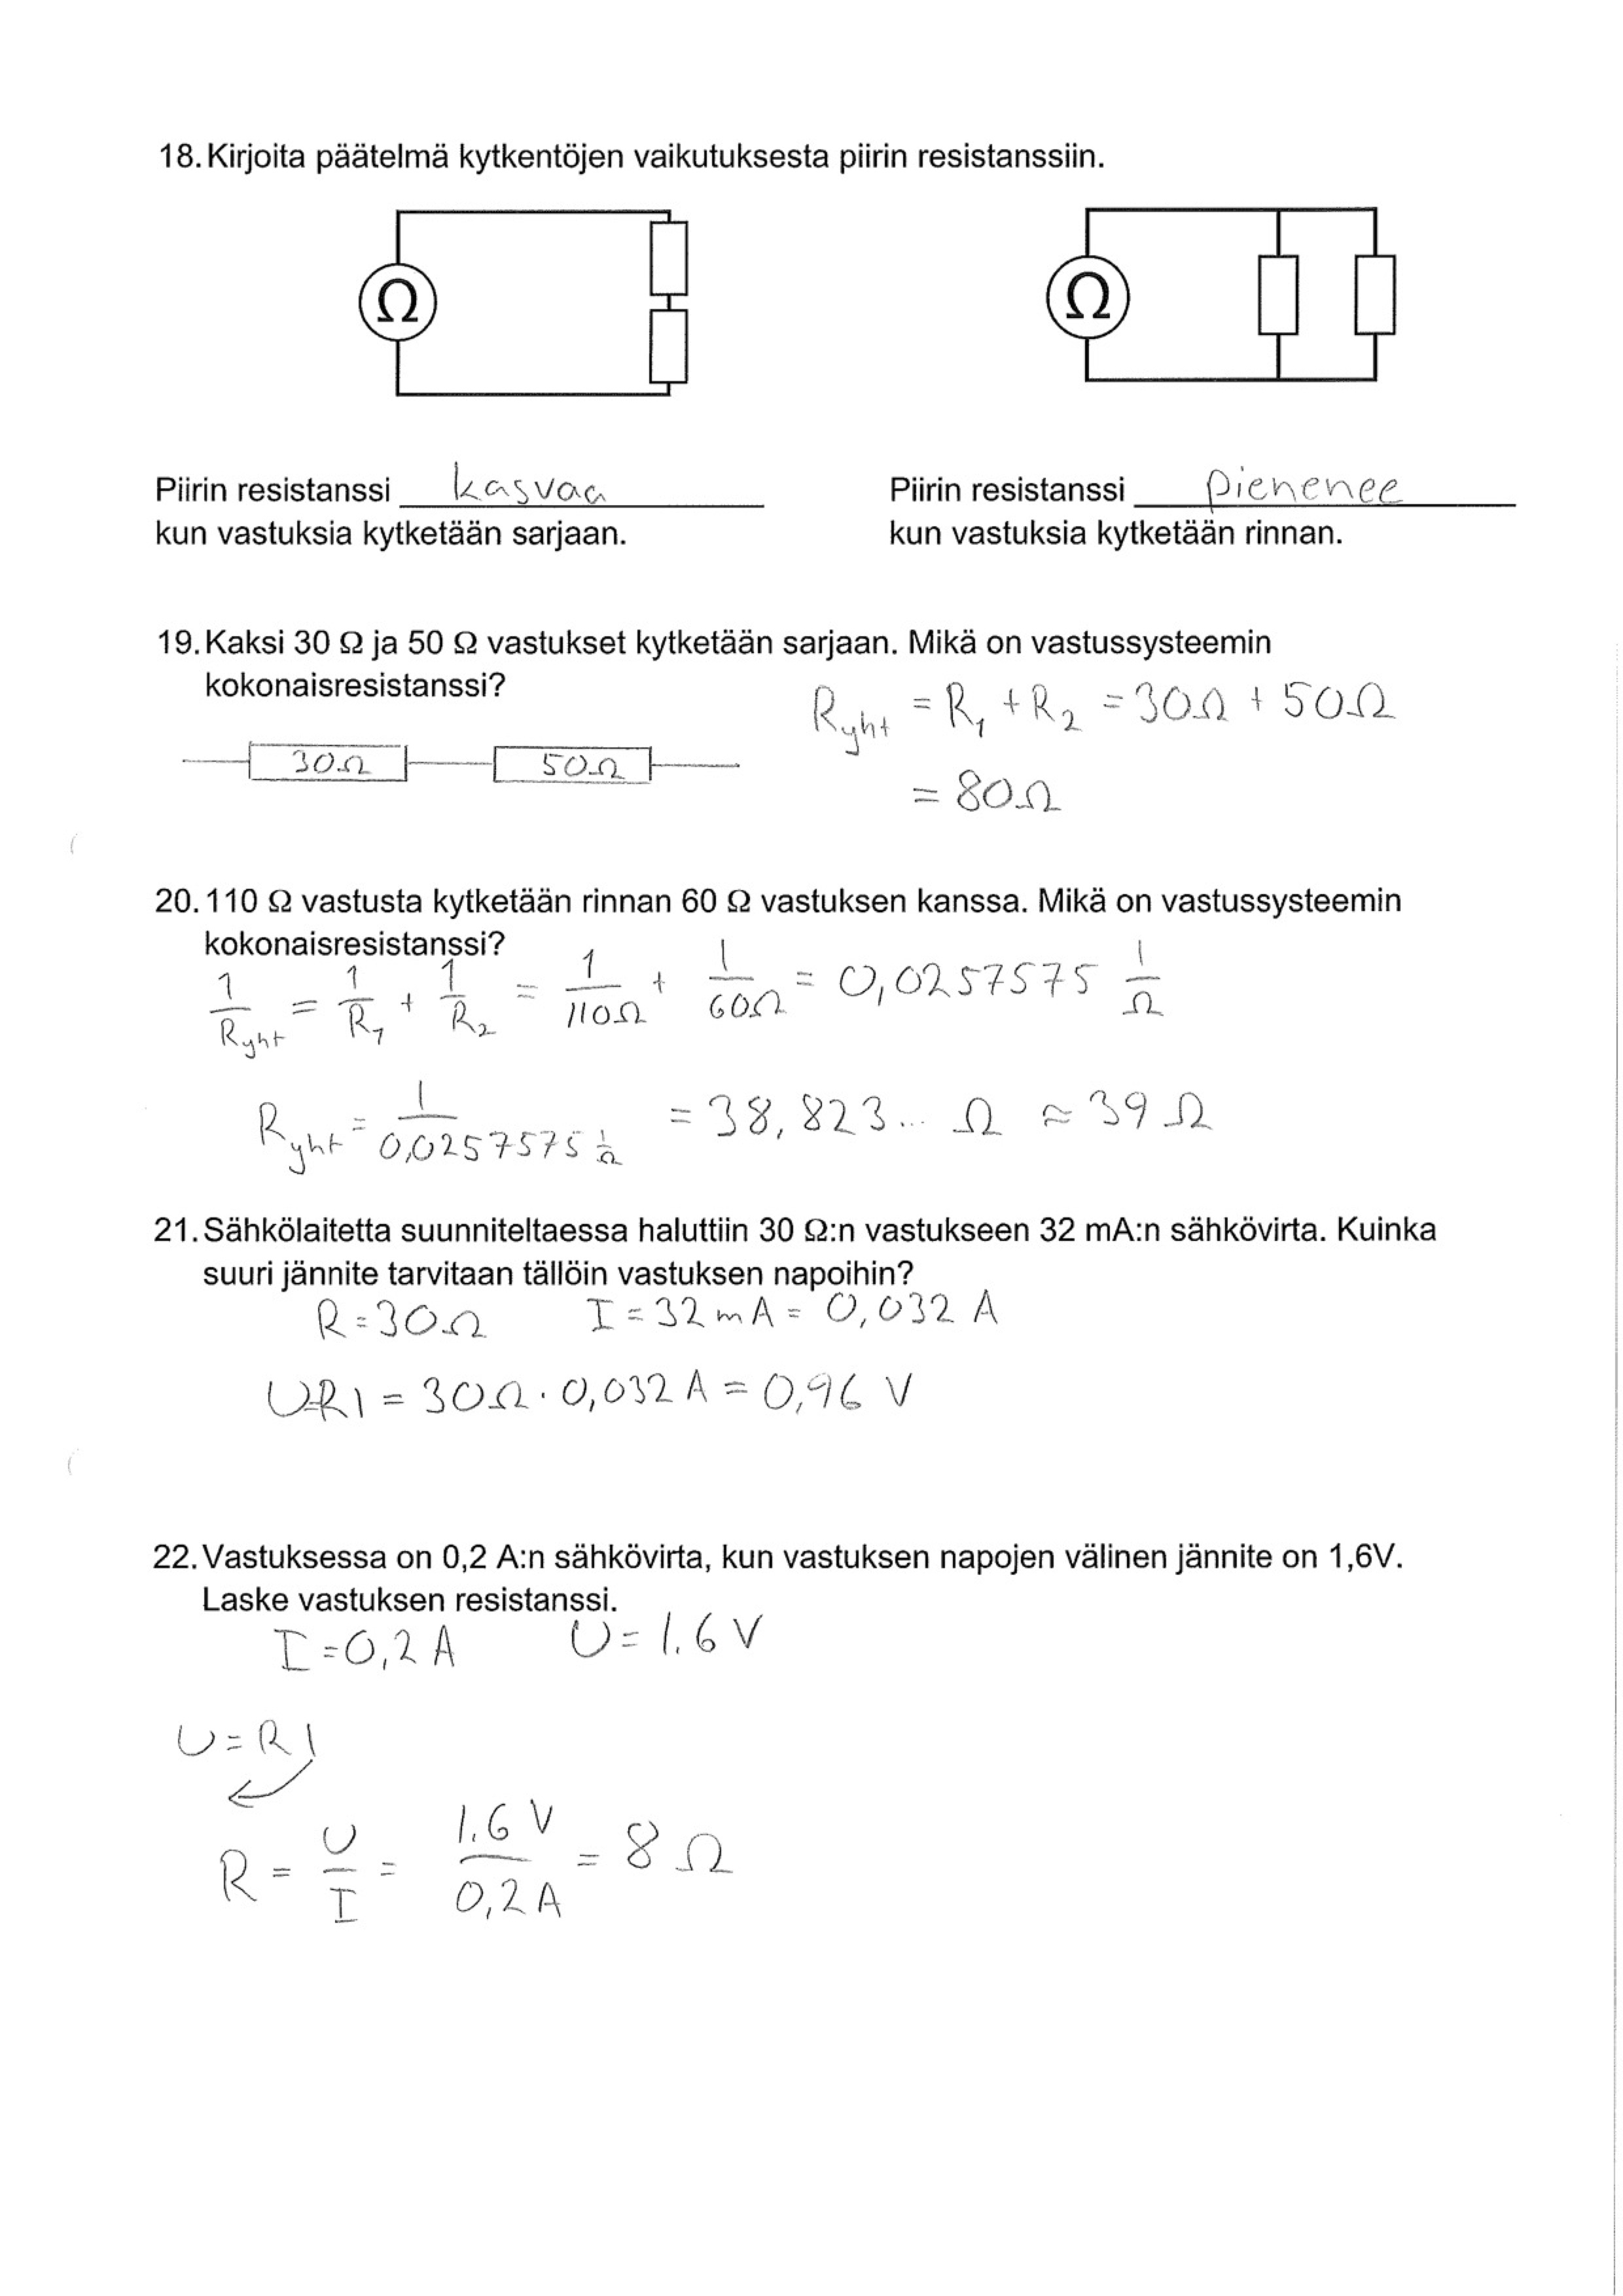 18. Kirjoita päätelmä kytkentöjen vaikutuksesta piirin resistanssiin.
Ω Ω
Piirin resistanssi kasvaa
kun vastuksia kytketään sarjaan.
Piirin resistanssi pienenee
kun vastuksia kytketään rinnan.
19. Kaksi 30 Ω ja 50 Ω vastukset kytketään sarjaan. Mikä on vastussysteemin
kokonaisresistanssi?
R_yht = R_1 + R_2 = 30Ω + 50Ω
30Ω 50Ω
= 80Ω
20. 110 Ω vastusta kytketään rinnan 60 Ω vastuksen kanssa. Mikä on vastussysteemin
kokonaisresistanssi?
1/R_yht = 1/R_1 + 1/R_2 = 1/110Ω + 1/60Ω = 0,0257575 1/Ω
R_yht = 1/0,0257575 1/Ω = 38,823... Ω ≈ 39 Ω
21. Sähkölaitetta suunniteltaessa haluttiin 30 Ω:n vastukseen 32 mA:n sähkövirta. Kuinka
suuri jännite tarvitaan tällöin vastuksen napoihin?
R = 30Ω I = 32 mA = 0,032 A
U=RI = 30Ω · 0,032 A = 0,96 V
22. Vastuksessa on 0,2 A:n sähkövirta, kun vastuksen napojen välinen jännite on 1,6V.
Laske vastuksen resistanssi.
I = 0,2 A U = 1.6 V
U = RI
R = U/I = 1.6 V/0,2 A = 8 Ω